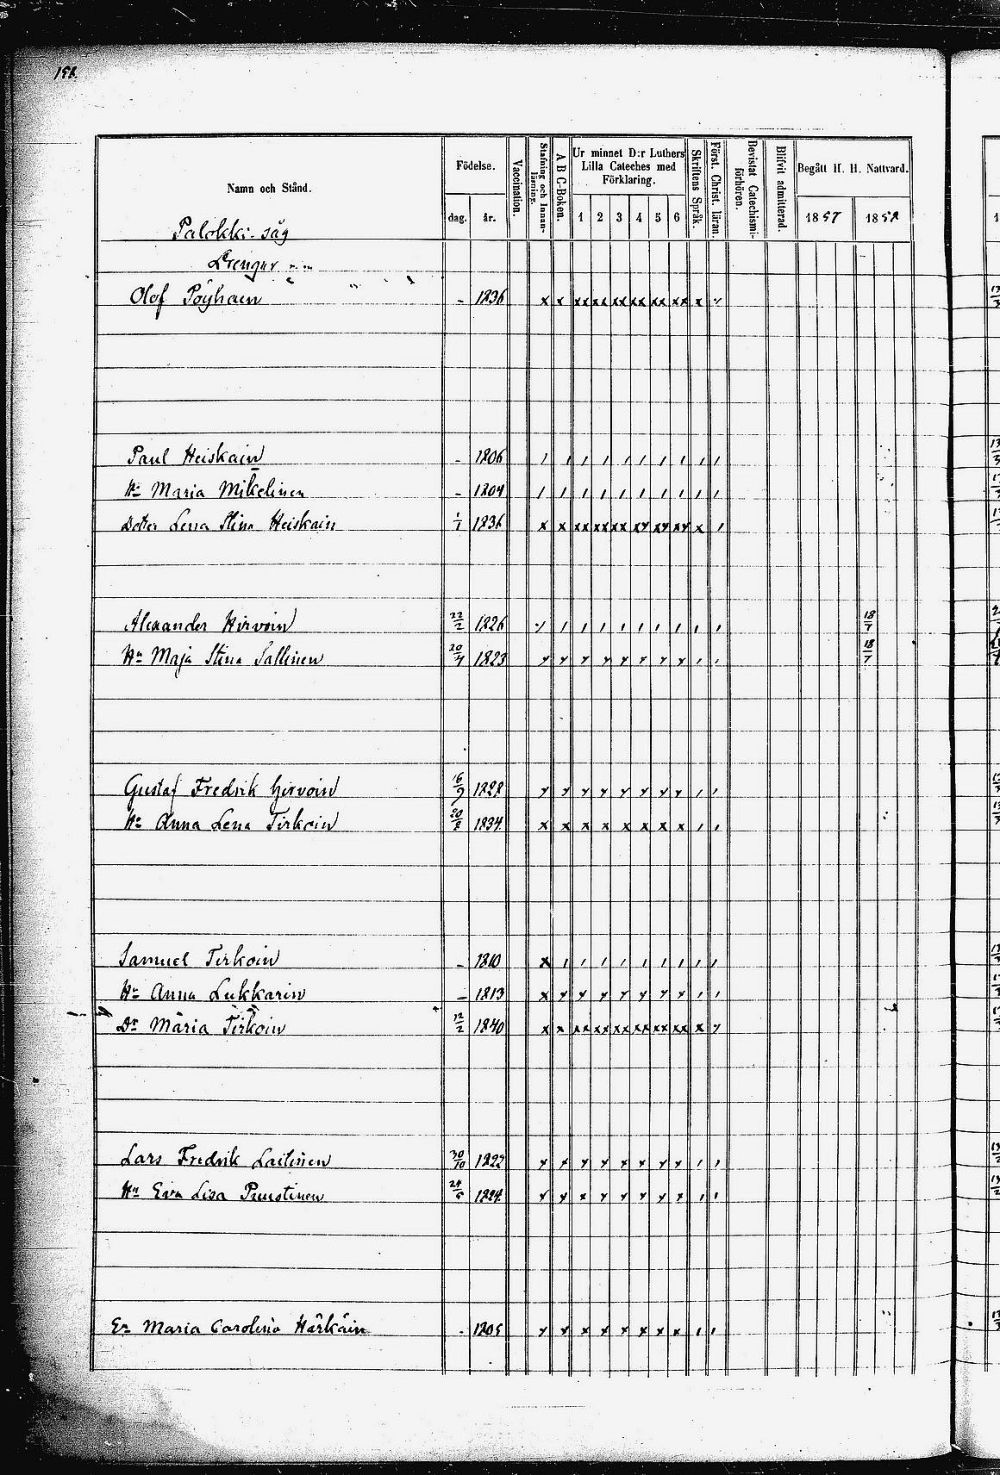 158.
Namn och Stånd.
Födelse.
dag.
år.
Vaccination.
Stafning och Innan-
läsning.
A B C-Boken.
Ur minnet D:r Luthers
Lilla Cateches med
Förklaring.
1 2 3 4 5 6
Skriftens Språk.
Först. Christ. läran.
Bevistat Catechismi-
förhören.
Blifvit admitterad.
Begått H. H. Nattvard.
1857 1858
Palokki-såg
Drengar
Olof Pöyhäin - 1836 x x xx xx xx xx xx xx x
Paul Heiskain - 1806
Hu Maria Mikelinen - 1804
Dotter Lena Stina Heiskain 1/1 1836
Alexander Hirvoin 22/2 1826 18/7
Hu Maja Stina Sallinen 20/4 1823 18/7
Gustaf Fredrik Hirvoin 16/9 1828
Hu Anna Lena Tirkoin 20/8 1834
Samuel Tirkoin - 1810
Hu Anna Lukkarin - 1813
Dr Maria Tirkoin 12/2 1840
Lars Fredrik Laitinen 30/10 1822
Hu Eva Lisa Puustinen 24/6 1824
En Maria Carolina Härkäin - 1805